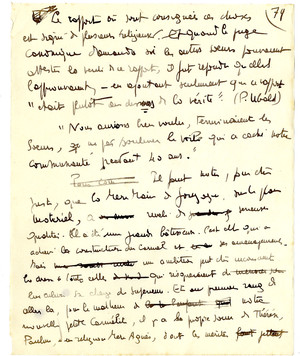 79
Le rapport où sont consignées ces choses
est signé de plusieurs religieuses. Et quand le juge
canonique demanda si les autres sœurs pouvaient
attester la vérité du rapport, il fut répondu qu'elles
l'approuvaient, en ajoutant seulement que ce rapport
"était plutôt au-dessous de la vérité" (P. Ubald)
"Nous aurions bien voulu, terminaient les
sœurs, ne pas soulever le voile qui a caché notre
communauté pendant 40 ans."
Il faut noter, pour être
juste, que la Mère Marie de Gonzague, sur le plan
matériel, a de
qualités. Elle a été une grande bâtisseuse. C'est elle qui a
achevé les constructions du Carmel et ses aménagements.
Mais son ambition fut
les armes à toutes celles qui risquaient de
charge de supérieure. Et au premier rang de
elles là, pour le malheur de notre
nouvelle petite Carmélite, il y a la propre sœur de Thérèse,
Pauline, en religion Mère Agnès, dont le mérite